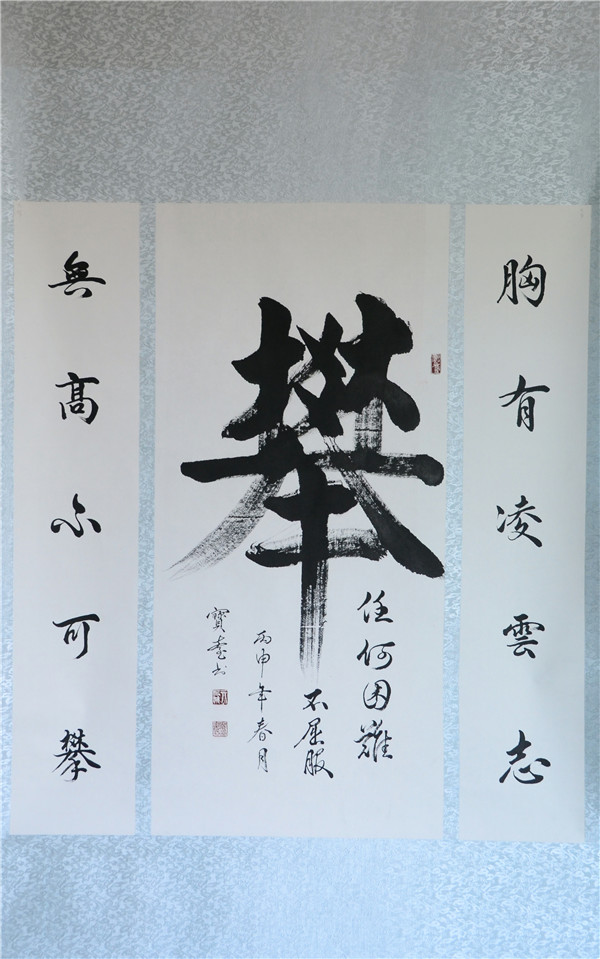 胸有凌雲志
攀
任何困難
不屈服
丙申年春月
寶
書
無髙不可攀